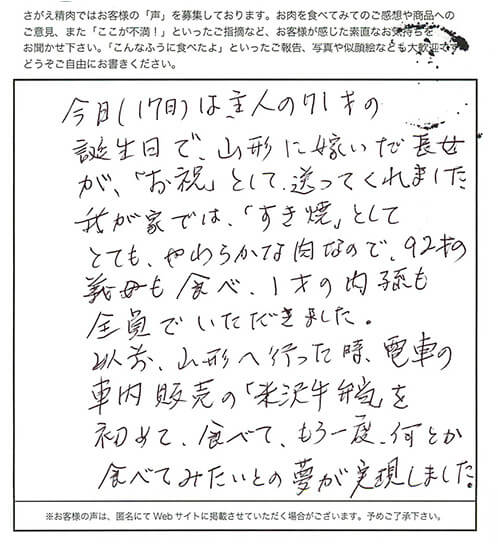 さがえ精肉ではお客様の「声」を募集しております。お肉を食べてみてのご感想や商品への
ご意見、また「ここが不満！」といったご指摘など、お客様が感じた素直なお気持ちを
お聞かせ下さい。「こんなふうに食べたよ」といったご報告、写真や似顔絵なども大歓迎です
どうぞご自由にお書きください。
今日(17日)は主人の71才の
誕生日で、山形に嫁いだ長女
が、「お祝」として、送ってくれました
我が家では、「すき焼」として
とても、やわらかな肉なので、92才の
義母も食べ、1才の内孫も
全員でいただきました。
以前、山形へ行った時、電車の
車内販売の「米沢牛弁当」を
初めて、食べて、もう一度、何とか
食べてみたいとの夢が実現しました。
※お客様の声は、匿名にてWebサイトに掲載させていただく場合がございます。予めご了承下さい。